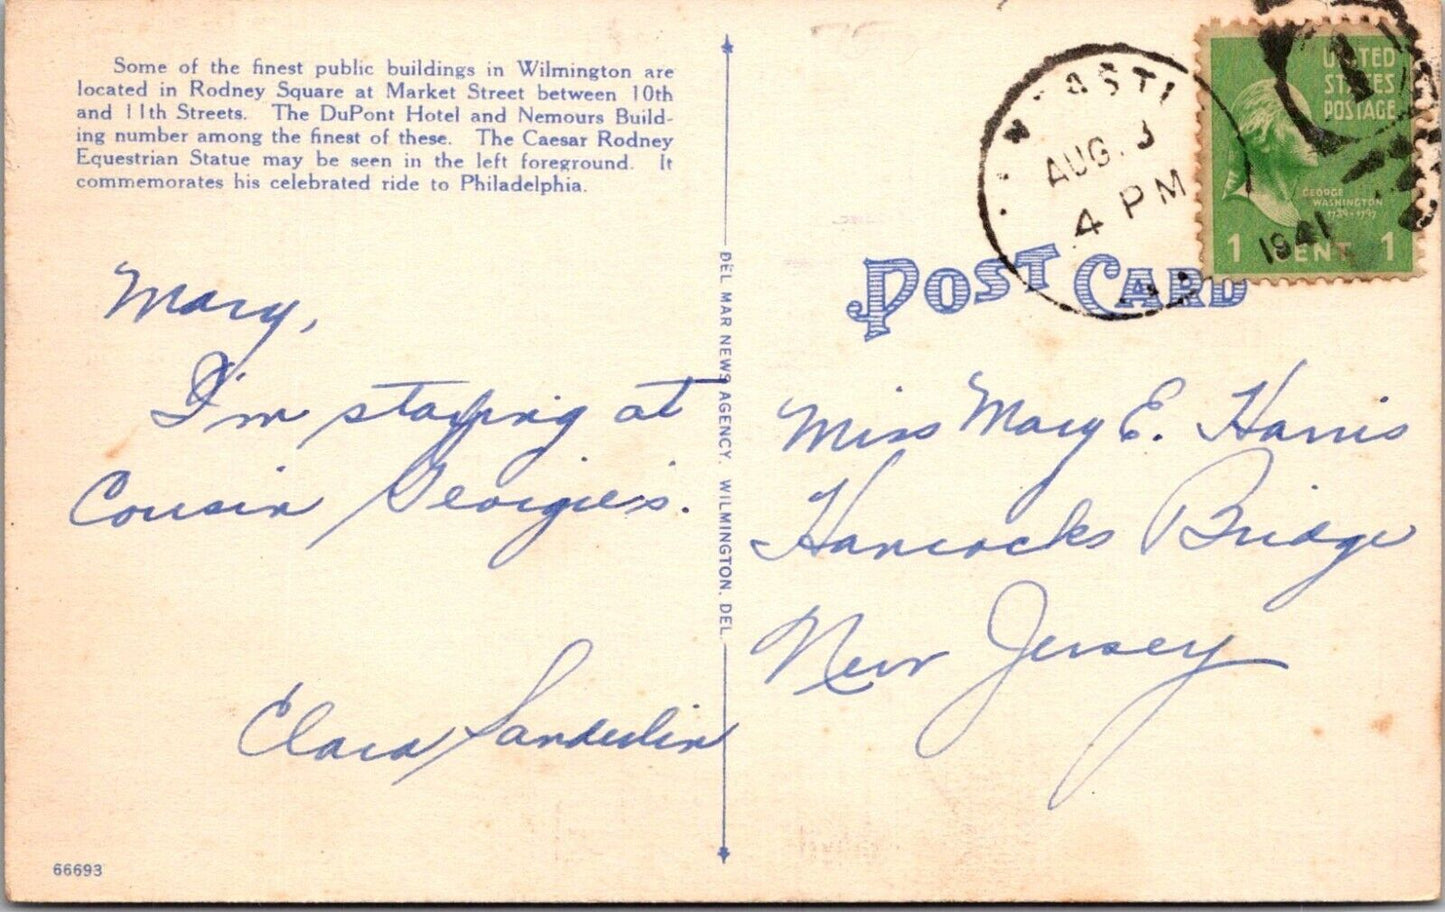 Some of the finest public buildings in Wilmington are
located in Rodney Square at Market Street between 10th
and 11th Streets. The DuPont Hotel and Nemours Build-
ing number among the finest of these. The Caesar Rodney
Equestrian Statue may be seen in the left foreground. It
commemorates his celebrated ride to Philadelphia.
Mary,
I'm staying at
Cousin Georgie's.
Clara Sanderlin
66693
DEL MAR NEWS AGENCY, WILMINGTON, DEL.
AUG. 3
4 PM
1941
UNITED
STATES
POSTAGE
GEORGE
WASHINGTON
1 CENT 1
POST CARD
Miss Mary E. Harris
Hancocks Bridge
New Jersey